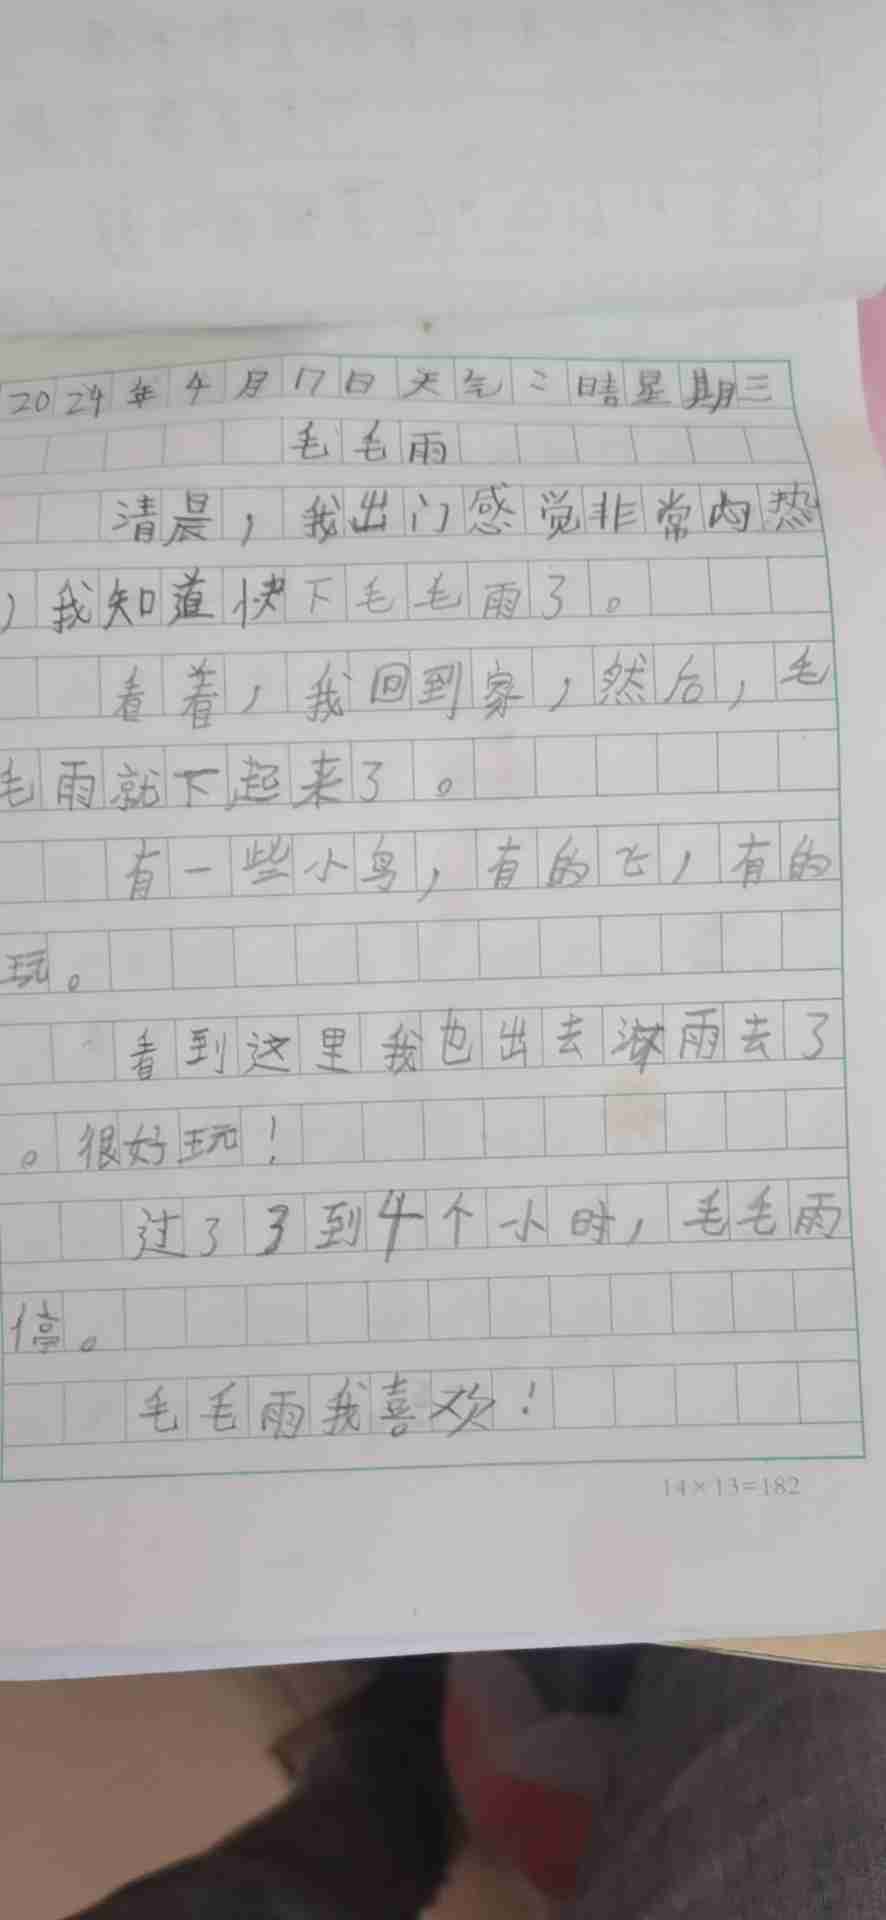 2024年4月17日天气：晴星期三
毛毛雨
清晨，我出门感觉非常闷热
，我知道快下毛毛雨了。
看着，我回到家，然后，毛
毛雨就下起来了。
有一些小鸟，有的飞，有的
玩。
看到这里我也出去淋雨去了
。很好玩！
过了3到4个小时，毛毛雨
停。
毛毛雨我喜欢！
14×13=182